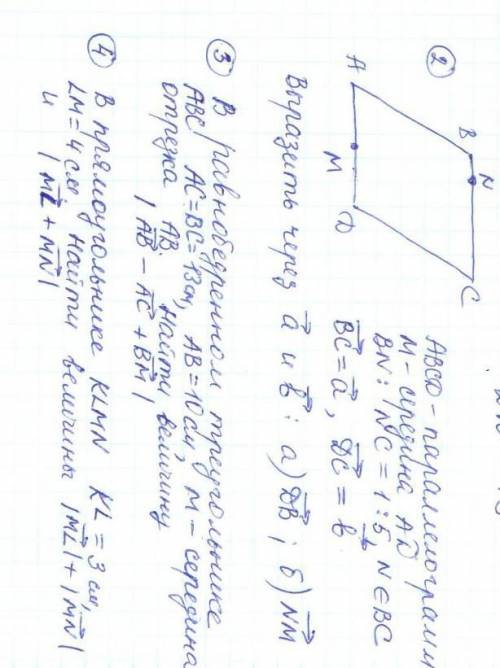 ②
A
B
N
C
M
D
ABCD - параллелограмм
M - середина AD
BN : NC = 1:5, N∈BC
BC⃗ = a⃗, DC⃗ = b⃗
Выразить через a⃗ и b⃗ : а) DB⃗ ; б) NM⃗
③ В равнобедренном треугольнике
ABC AC=BC=13см, AB=10см, M - середина
отрезка AB. Найти величину
|AB⃗ - AC⃗ + BM⃗|
④ В прямоугольнике KLMN KL = 3 см,
LM = 4 см. Найти величины |ML⃗| + |MN⃗|
и |ML⃗ + MN⃗|